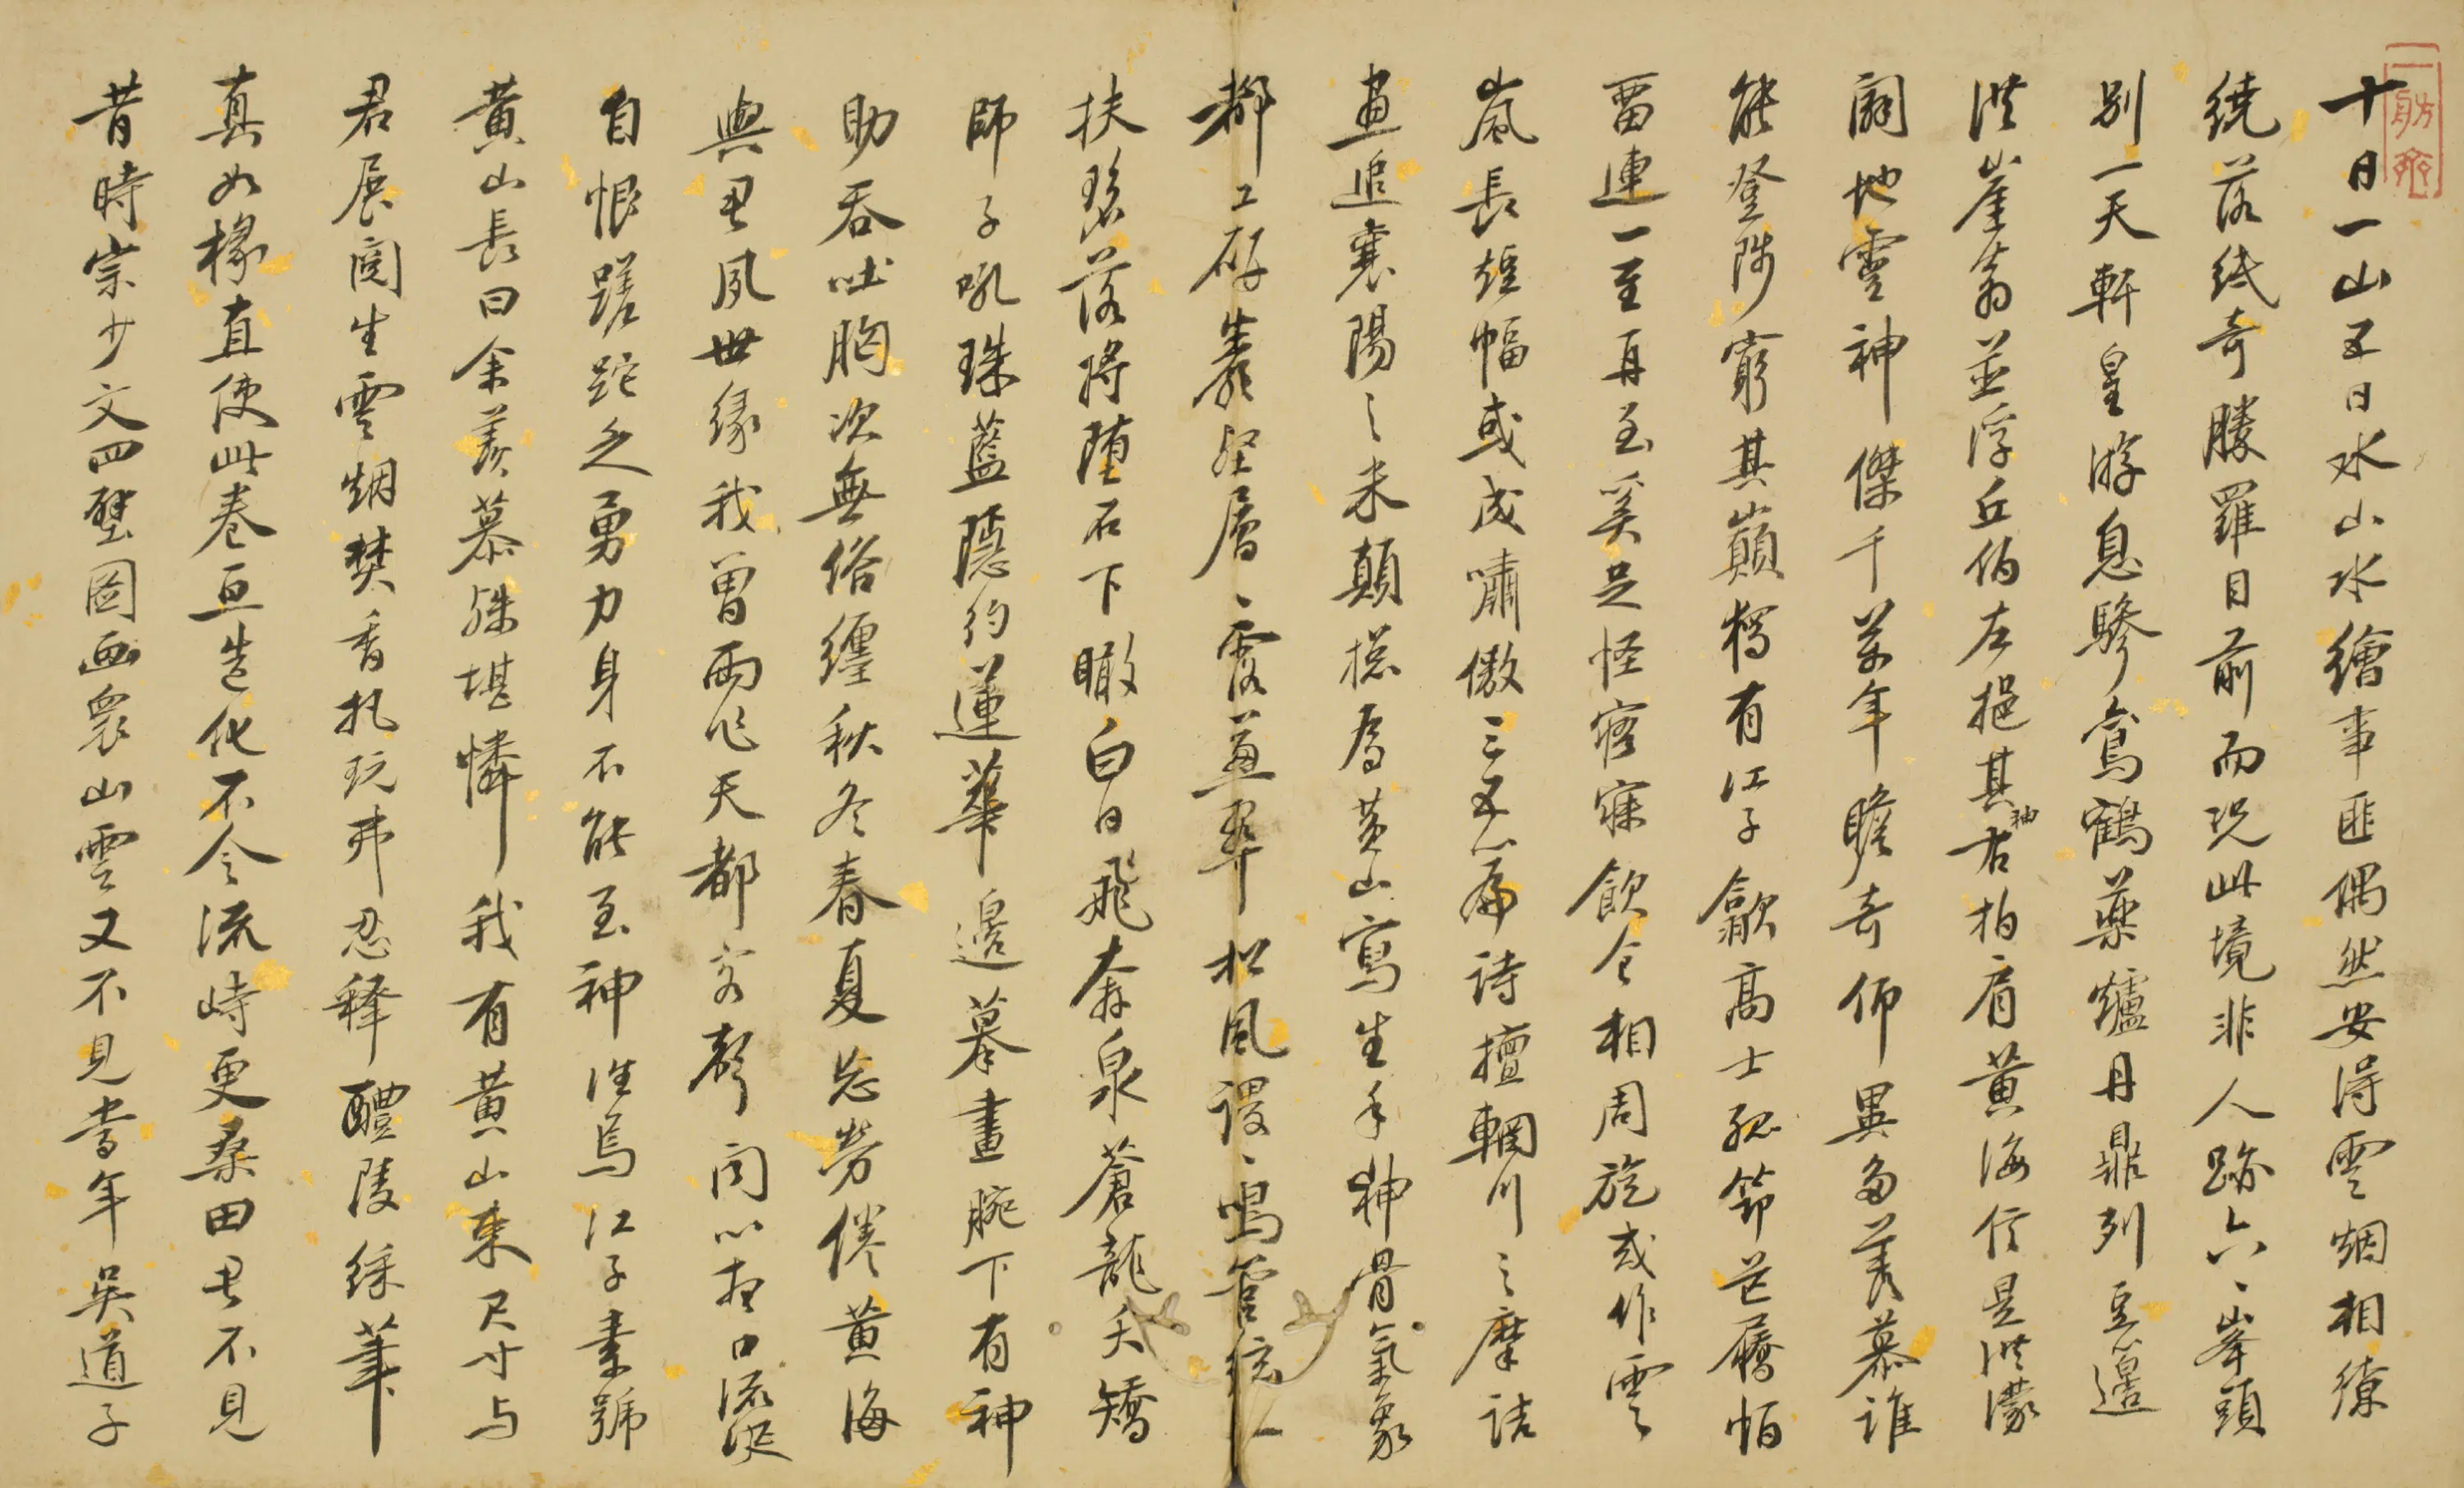 一舫齋
十日一山五日水山水繪事匪偶然安得雲烟相繚
繞落紙奇勝羅目前而況此境非人跡六〻峯頭
別一天軒皇游息驂鸞鶴藥爐丹鼎列 邊
洪崖翁並浮丘伯左挹其袖右拍肩黃海信是洪濛
闢地靈神傑千萬年瞻奇仰異多羨慕誰
能登陟窮其巔獨有江子歙高士孤笻芒屩恒
留連一至再至奚足怪寤寐飲食相周旋或作雲
嵐長短幅或成嘯傲三五篇詩擅輞川之摩詰
畫追襄陽之米顛搃為黃山寫生手神骨氣象
都工研 層〻露蒼翠松風謖〻鳴管絃仁
扶 落將墮石下瞰白日飛奔泉蒼龍夭矯
師子吼珠藍隱約蓮華邊摹畫腕下有神
助吞吐胸次無俗纏秋冬春夏忘勞倦黃海
與君夙世緣我曾兩作天都客聲聞心 口流涎
自恨蹉跎乏勇力身不能至神往焉江子素號
黃山長曰余羨慕殊堪憐我有黃山束尺寸与
君展閱生雲烟焚香 玩弗忍釋醴陵綵筆
真如椽直使此卷亘造化不令流峙更桑田君不見
昔時宗少文四壁圖畫衆山雲又不見當年吳道子